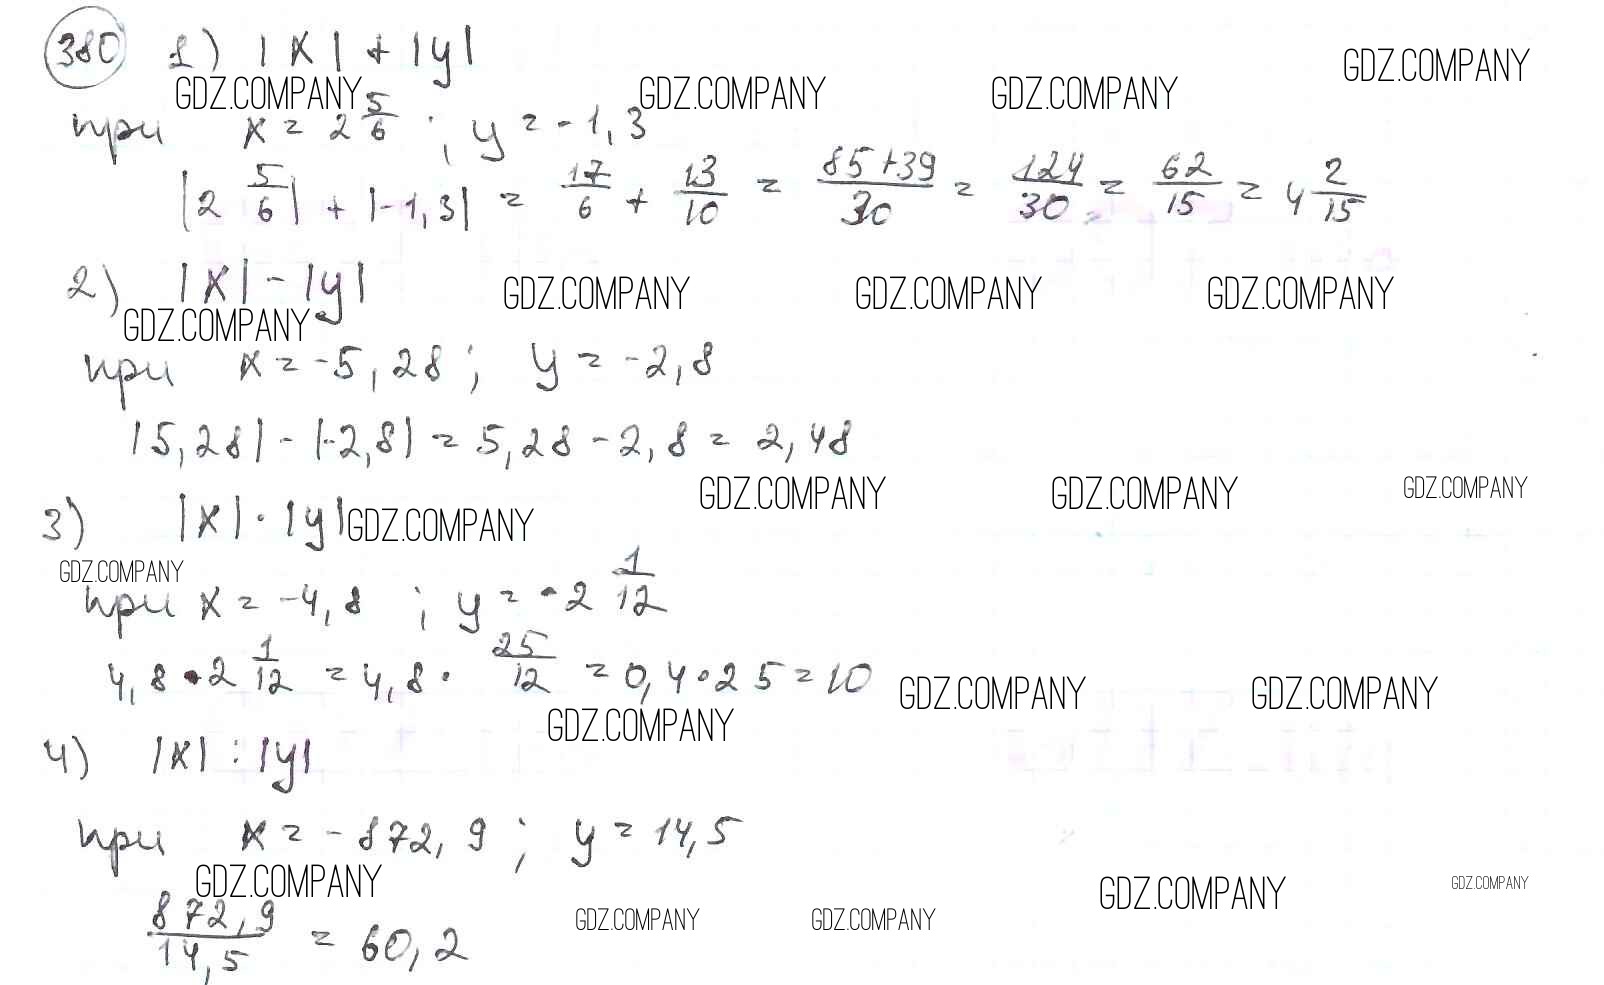 380 1) |x| + |y|
GDZ.COMPANY
GDZ.COMPANY GDZ.COMPANY GDZ.COMPANY
при x = 2 5/6 ; y = -1,3
|2 5/6| + |-1,3| = 17/6 + 13/10 = 85+39/30 = 124/30 = 62/15 = 4 2/15
2) |x| - |y|
GDZ.COMPANY GDZ.COMPANY GDZ.COMPANY
GDZ.COMPANY
при x = -5,28 ; y = -2,8
|5,28| - |-2,8| = 5,28 - 2,8 = 2,48
GDZ.COMPANY GDZ.COMPANY GDZ.COMPANY
3) |x| · |y|
GDZ.COMPANY
GDZ.COMPANY
при x = -4,8 ; y = -2 1/12
4,8 · 2 1/12 = 4,8 · 25/12 = 0,4 · 25 = 10
GDZ.COMPANY GDZ.COMPANY
GDZ.COMPANY
4) |x| : |y|
при x = -872,9 ; y = 14,5
GDZ.COMPANY GDZ.COMPANY GDZ.COMPANY
GDZ.COMPANY GDZ.COMPANY
872,9/14,5 = 60,2